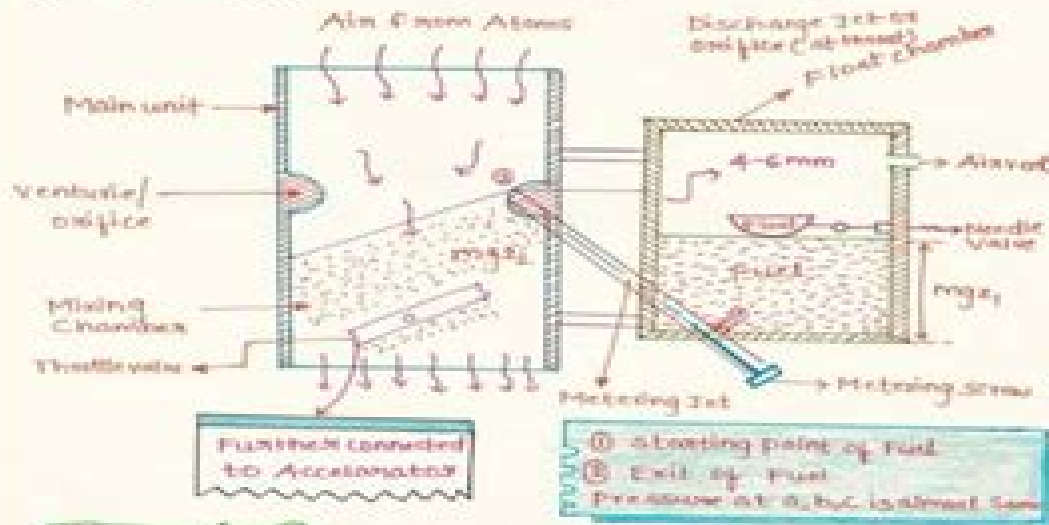 Air from Atoms
Discharge Jet or
orifice (at throat)
Float chamber
Main unit
4-6mm
Air vent
②
Venturie/
orifice
Float
Needle
Valve
mgz₂
Fuel
mgz₁
Mixing
Chamber
Throttle valve
Metering Jet
Metering screw
Further connected
to Accelarator
① starting point of Fuel
② Exit of Fuel
Pressure at a,b,c is almost Same